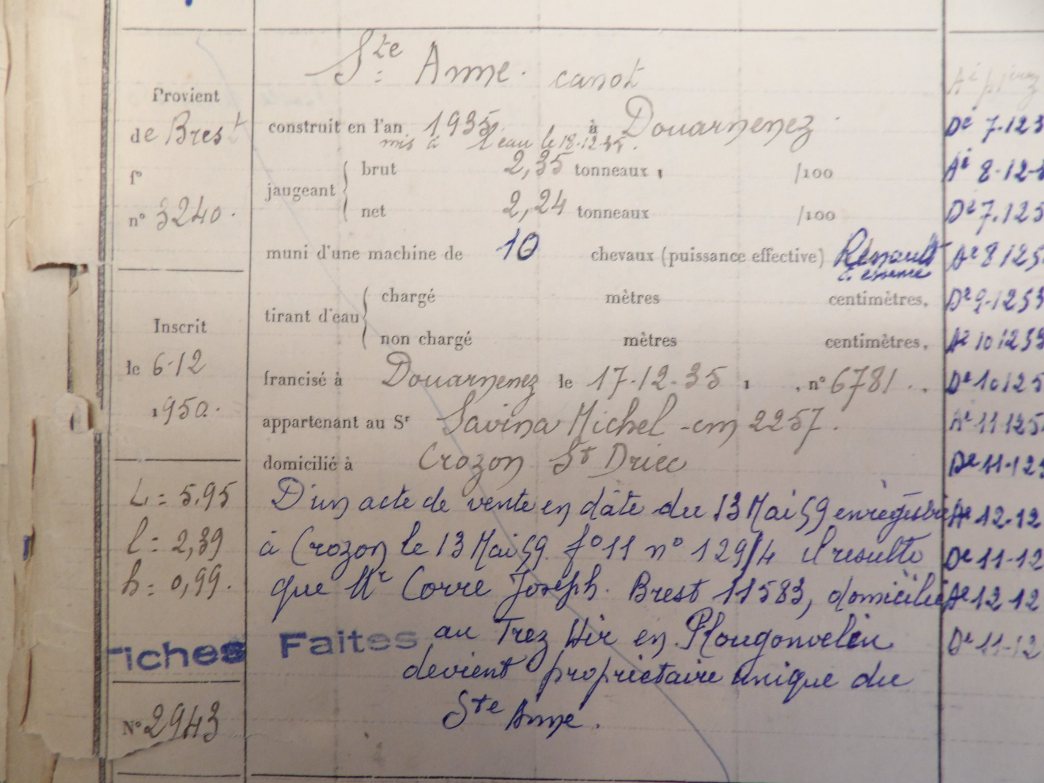 Ste Anne. canot
Provient
de Brest
construit en l'an 1935 à Douarnenez.
mis à l'eau le 18-12-35.
fº
nº 3240.
jaugeant
brut 2,35 tonneaux, /100
net 2,24 tonneaux /100
muni d'une machine de 10 chevaux (puissance effective) Renault
à essence
tirant d'eau
chargé mètres centimètres.
non chargé mètres centimètres.
Inscrit
le 6-12
1950.
francisé à Douarnenez le 17-12-35, nº 6781.
appartenant au Sr Savina Michel - cm 2257.
domicilié à Crozon St Driec
L = 5,95
l = 2,39
h = 0,99.
D'un acte de vente en date du 13 Mai 59 enregistré
à Crozon le 13 Mai 59 fº 11 nº 129/4 il résulte
que Mr Corre Joseph. Brest 11583, domicilié
au Trez Hir en Plougonvelin
devient propriétaire unique du
Ste Anne.
Fiches Faites
Nº 2943
De 7-123
Ai 8-12-
De 7.125
Ae 8 125
De 9-1253
Ae 10 1253
De 10125
Ae 11-125
De 11-125
Ae 12-12
De 11-12
Ae 12 12
De 11-12